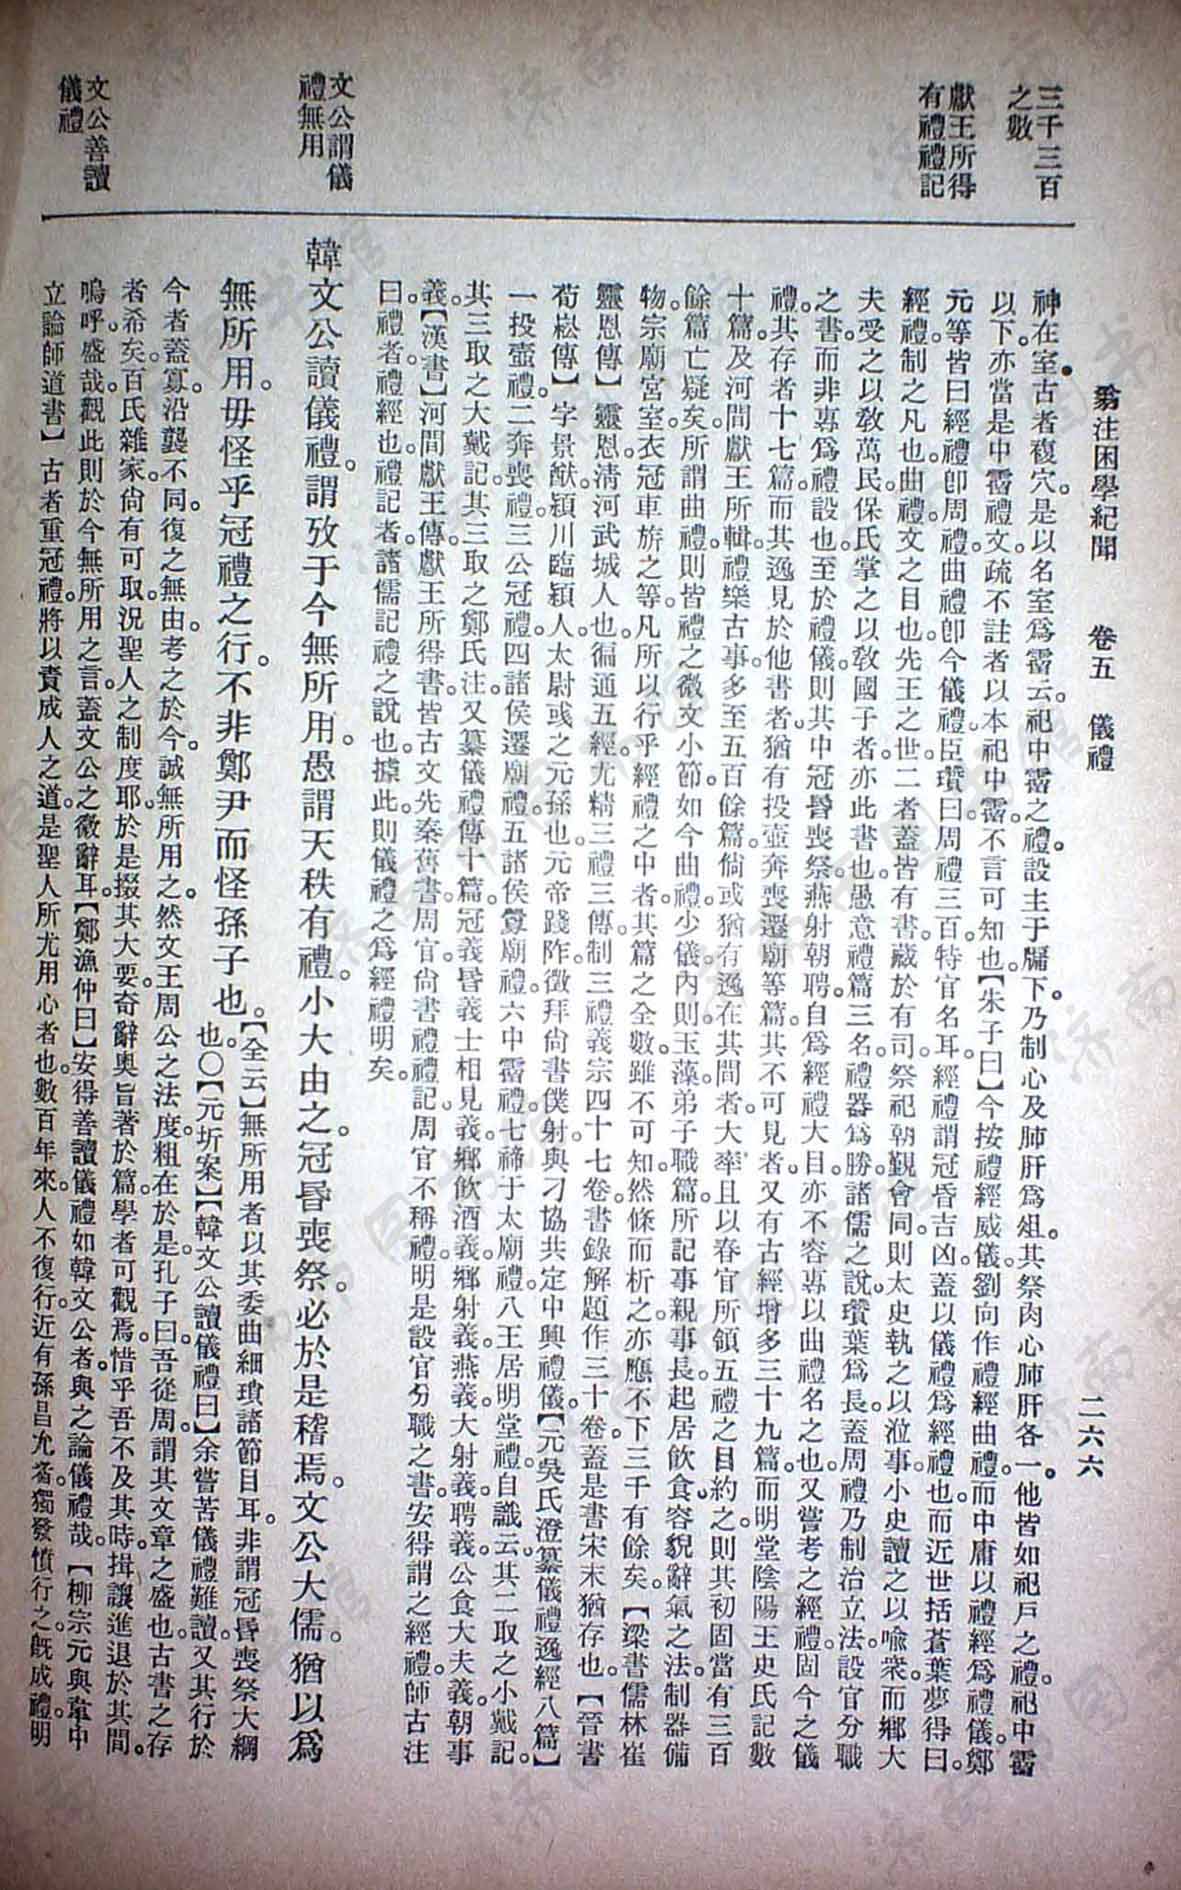 翁注困學紀聞　卷五　儀禮　二六六
三千三百
之數
獻王所得
有禮禮記
文公謂儀
禮無用
文公善讀
儀禮
神在室古者複穴。是以名室爲霤云。祀中霤之禮。設主于牖下。乃制心及肺肝爲俎。其祭肉心肺肝各一。他皆如祀戶之禮。祀中霤
以下。亦當是中霤禮文。疏不註者以本祀中霤。不言可知也。【朱子曰】今按禮經威儀。劉向作禮經曲禮。而中庸以禮經爲禮儀。鄭
元等皆曰經禮卽周禮。曲禮卽今儀禮。臣瓚曰。周禮三百。特官名耳。經禮謂冠昏吉凶。蓋以儀禮爲經禮也。而近世括蒼葉夢得曰。
經禮制之凡也。曲禮文之目也。先王之世。二者蓋皆有書。藏於有司。祭祀朝覲會同。則太史執之以涖事。小史讀之以喩衆。而鄉大
夫受之以敎萬民。保氏掌之以敎國子者。亦此書也。愚意禮篇三名。禮器爲勝。諸儒之說。瓚葉爲長。蓋周禮乃制治立法。設官分職
之書。而非專爲禮設也。至於禮儀。則其中冠昏喪祭。燕射朝聘。自爲經禮大目。亦不容專以曲禮名之也。又嘗考之經禮。固今之儀
禮。其存者十七篇。而其逸見於他書者。猶有投壺奔喪遷廟等篇。其不可見者。又有古經增多三十九篇。而明堂陰陽王史氏記數
十篇。及河間獻王所輯禮樂古事。多至五百餘篇。倘或猶有逸在其間者。大率且以春官所領五禮之目約之。則其初固當有三百
餘篇亡疑矣。所謂曲禮。則皆禮之微文小節。如今曲禮。少儀。內則。玉藻。弟子職篇。所記事親事長。起居飲食。容貌辭氣之法。制器備
物。宗廟宮室。衣冠車旂之等。凡所以行乎經禮之中者。其篇之全數。雖不可知。然條而析之。亦應不下三千有餘矣。【梁書儒林崔
靈恩傳】靈恩。淸河武城人也。徧通五經。尤精三禮三傳。制三禮義宗四十七卷。書錄解題作三十卷。蓋是書宋末猶存也。【晉書
荀崧傳】字景猷。潁川臨潁人。太尉彧之元孫也。元帝踐阼。徵拜尙書僕射。與刁協共定中興禮儀。【元吳氏澄纂儀禮逸經八篇】
一投壺禮。二奔喪禮。三公冠禮。四諸侯遷廟禮。五諸侯釁廟禮。六中霤禮。七禘于太廟禮。八王居明堂禮。自識云。其二取之小戴記。
其三取之大戴記。其三取之鄭氏注。又纂儀禮傳十篇。冠義昏義士相見義。鄉飲酒義。鄉射義。燕義。大射義。聘義。公食大夫義。朝事
義。【漢書】河間獻王傳。獻王所得書。皆古文先秦舊書。周官尙書禮禮記。周官不稱禮。明是設官分職之書。安得謂之經禮。師古注
曰。禮者。禮經也。禮記者。諸儒記禮之說也。據此。則儀禮之爲經禮明矣。
韓文公讀儀禮。謂攷于今無所用。愚謂天秩有禮。小大由之。冠昏喪祭。必於是稽焉。文公大儒。猶以爲
無所用。毋怪乎冠禮之行。不非鄭尹而怪孫子也。【全云】無所用者。以其委曲細瑣諸節目耳。非謂冠昏喪祭大綱
也。〇【元圻案】【韓文公讀儀禮曰】余嘗苦儀禮難讀。又其行於
今者蓋寡。沿襲不同。復之無由。考之於今。誠無所用之。然文王周公之法度。粗在於是。孔子曰。吾從周。謂其文章之盛也。古書之存
者希矣。百氏雜家。尙有可取。況聖人之制度耶。於是掇其大要。奇辭奧旨著於篇。學者可觀焉。惜乎吾不及其時。揖讓進退於其間。
嗚呼。盛哉。觀此則於今無所用之言。蓋文公之微辭耳。【鄭漁仲曰】安得善讀儀禮如韓文公者。與之論儀禮哉。【柳宗元與韋中
立論師道書】古者重冠禮。將以責成人之道。是聖人所尤用心者也。數百年來。人不復行。近有孫昌允者。獨發憤行之。旣成禮。明